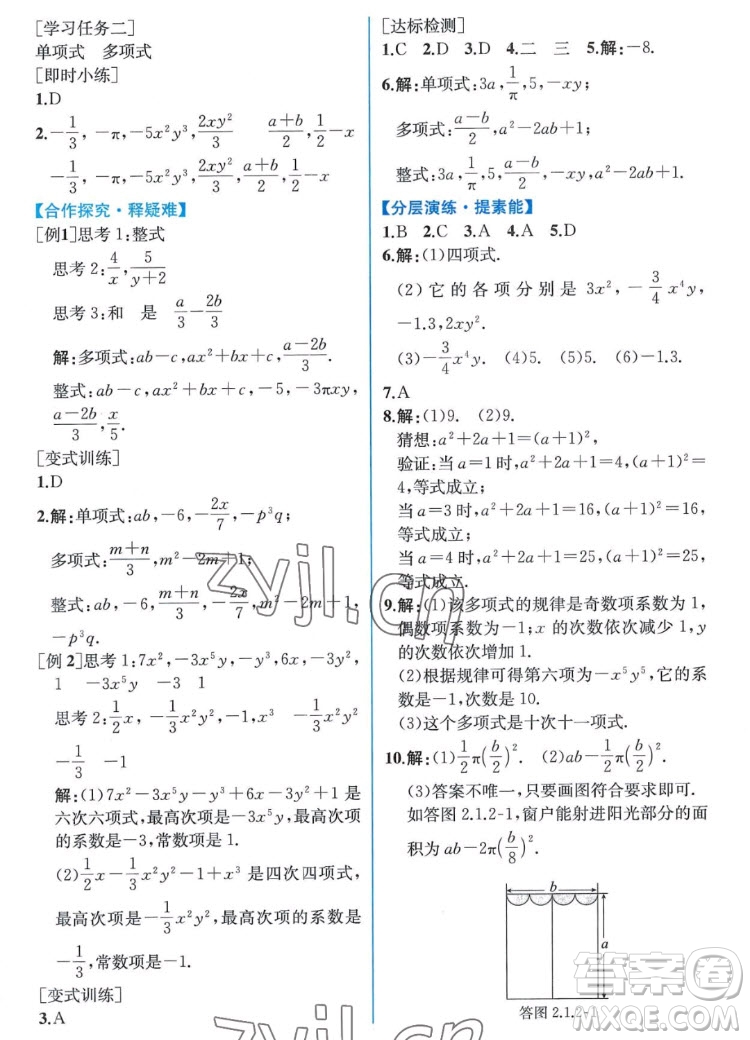 [学习任务二]
单项式　多项式
[即时小练]
1.D
2.－1/3，－π，－5x²y³，2xy²/3　(a＋b)/2，1/2－x
－1/3，－π，－5x²y³，2xy²/3，(a＋b)/2，1/2－x
【合作探究·释疑难】
[例1]思考1：整式
思考2：4/x，5/(y＋2)
思考3：和　是　a/3－2b/3
解：多项式：ab－c，ax²＋bx＋c，(a－2b)/3.
整式：ab－c，ax²＋bx＋c，－5，－3πxy，
(a－2b)/3，x/5.
[变式训练]
1.D
2.解：单项式：ab，－6，－2x/7，－p³q；
多项式：(m＋n)/3，m²－2m＋1；
整式：ab，－6，(m＋n)/3，－2x/7，m²－2m＋1，
－p³q.
[例2]思考1：7x²，－3x⁵y，－y³，6x，－3y²，
1　－3x⁵y　－3　1
思考2：1/2x，－1/3x²y²，－1，x³　－1/3x²y²
－1/3　－1
解：(1)7x²－3x⁵y－y³＋6x－3y²＋1是
六次六项式，最高次项是－3x⁵y，最高次项
的系数是－3，常数项是1.
(2)1/2x－1/3x²y²－1＋x³是四次四项式，
最高次项是－1/3x²y²，最高次项的系数是
－1/3，常数项是－1.
[变式训练]
3.A
[达标检测]
1.C　2.D　3.D　4.二　三　5.解：－8.
6.解：单项式：3a，1/π，5，－xy；
多项式：(a－b)/2，a²－2ab＋1；
整式：3a，1/π，5，(a－b)/2，－xy，a²－2ab＋1.
【分层演练·提素能】
1.B　2.C　3.A　4.A　5.D
6.解：(1)四项式.
(2)它的各项分别是3x²，－3/4x⁴y，
－1.3，2xy².
(3)－3/4x⁴y.　(4)5.　(5)5.　(6)－1.3.
7.A
8.解：(1)9.　(2)9.
猜想：a²＋2a＋1＝(a＋1)².
验证：当a＝1时，a²＋2a＋1＝4，(a＋1)²＝
4，等式成立；
当a＝3时，a²＋2a＋1＝16，(a＋1)²＝16，
等式成立；
当a＝4时，a²＋2a＋1＝25，(a＋1)²＝25，
等式成立.
9.解：(1)该多项式的规律是奇数项系数为1，
偶数项系数为－1；x的次数依次减少1，y
的次数依次增加1.
(2)根据规律可得第六项为－x⁵y⁵，它的系
数是－1，次数是10.
(3)这个多项式是十次十一项式.
10.解：(1)1/2π(b/2)².　(2)ab－1/2π(b/2)².
(3)答案不唯一，只要画图符合要求即可.
如答图2.1.2-1，窗户能射进阳光部分的面
积为ab－2π(b/8)².
b
a
答图2.1.2-1
zyjl.cn
zyjl.cn
答案圈
MXQE.COM